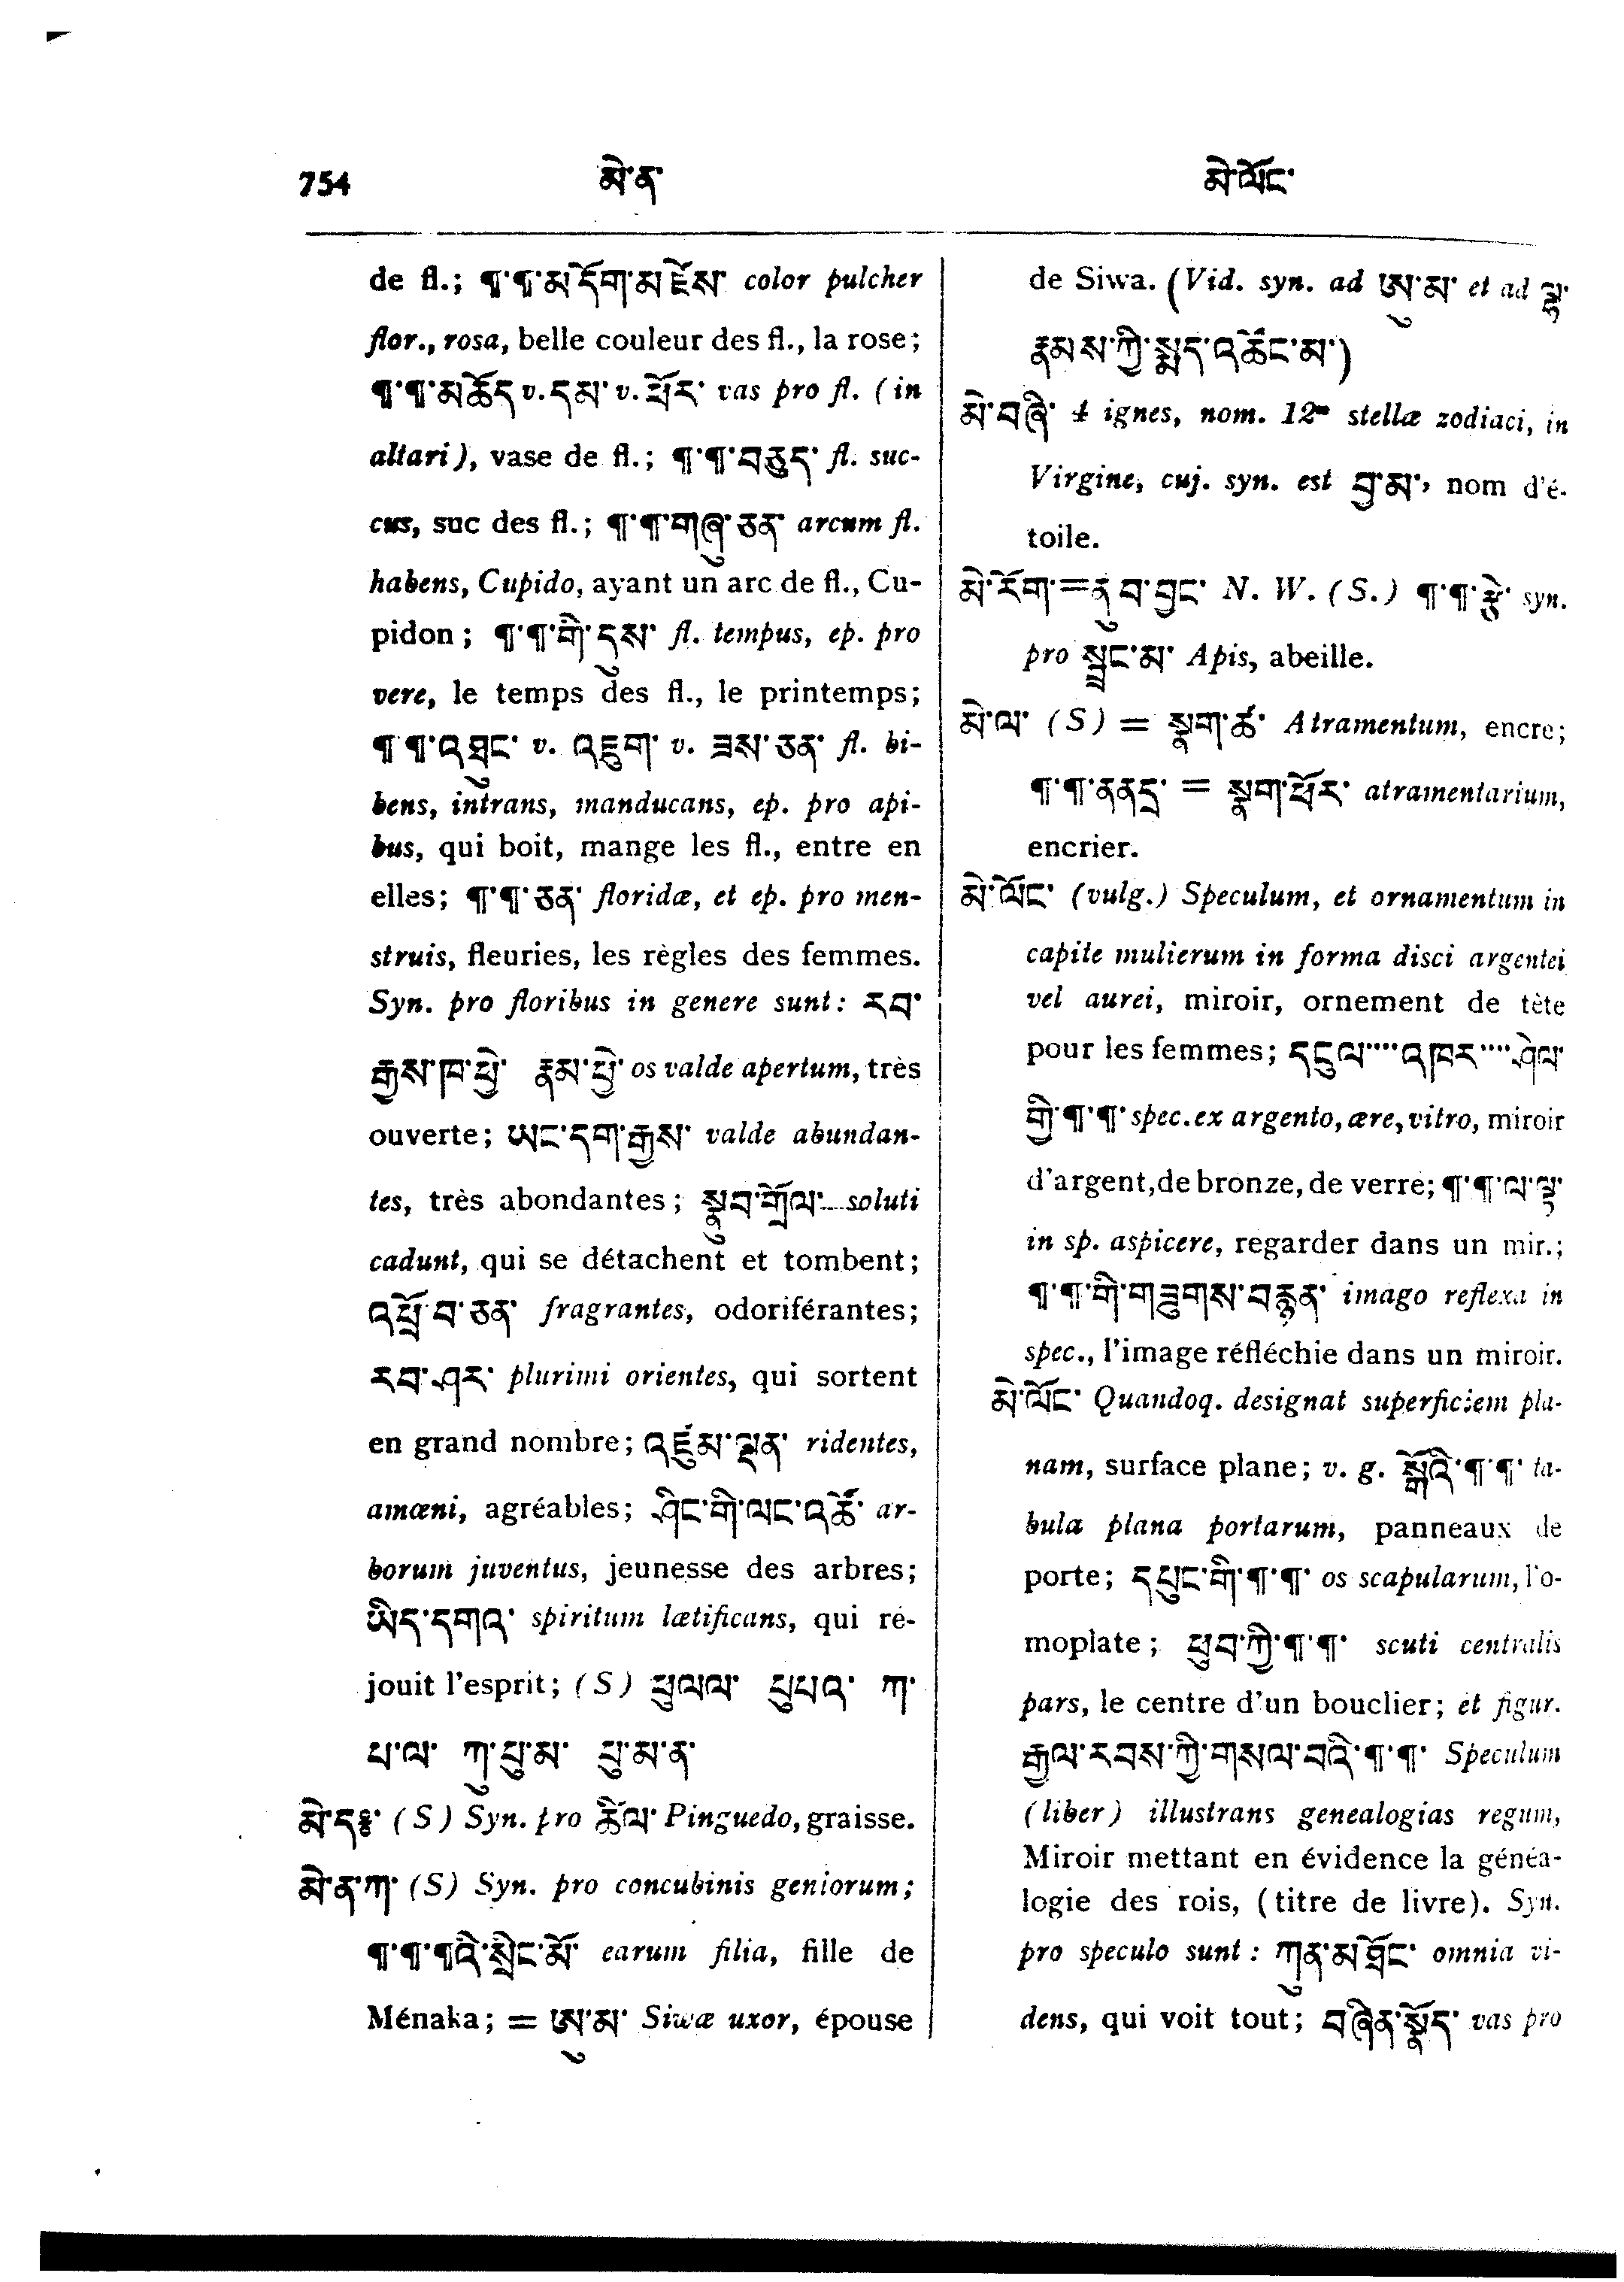 754
མེ་ན་
མེ་ལོང་
de fl.; ¶་¶་མདོག་མཛེས་ color pulcher
flor., rosa, belle couleur des fl., la rose;
¶་¶་མཆོད v. དམ་ v. ཕོར་ vas pro fl. (in
altari), vase de fl.; ¶་¶་བཅུད་ fl. suc-
cus, suc des fl.; ¶་¶་གཞུ་ཅན་ arcum fl.
habens, Cupido, ayant un arc de fl., Cu-
pidon; ¶་¶་གི་དུས་ fl. tempus, ep. pro
vere, le temps des fl., le printemps;
¶་¶་འཐུང་ v. འཇུག་ v. ཟས་ཅན་ fl. bi-
bens, intrans, manducans, ep. pro api-
bus, qui boit, mange les fl., entre en
elles; ¶་¶་ཅན་ floridæ, et ep. pro men-
struis, fleuries, les règles des femmes.
Syn. pro floribus in genere sunt: རབ་
རྒྱས་ཁ་ཕྱེ་ རྣམ་ཕྱེ་ os valde apertum, très
ouverte; ཡང་དག་རྒྱས་ valde abundan-
tes, très abondantes; སྣུབ་གྲོལ་ soluti
cadunt, qui se détachent et tombent;
འཕྲོ་བ་ཅན་ fragrantes, odoriférantes;
རབ་ཤར་ plurimi orientes, qui sortent
en grand nombre; འཛུམ་ལྡན་ ridentes,
amœni, agréables; ཤིང་གི་ལང་འཚོ་ ar-
borum juventus, jeunesse des arbres;
ཡིད་དགའ་ spiritum lætificans, qui ré-
jouit l'esprit; (S) ཕུལལ་ པུཔའ་ ཀ་
པ་ལ་ ཀུ་པུ་མ་ པུ་མ་ན་
མེ་ད༔ (S) Syn. pro ཚིལ་ Pinguedo, graisse.
མེ་ན་ཀ་ (S) Syn. pro concubinis geniorum;
¶་¶་¶འི་སྲིང་མོ་ earum filia, fille de
Ménaka; = ཨུ་མ་ Siwæ uxor, épouse
de Siwa. (Vid. syn. ad ཨུ་མ་ et ad ལྷ་
རྣམས་ཀྱི་སྨད་འཚོང་མ་)
མེ་བཞི་ 4 ignes, nom. 12ᵃᵉ stellæ zodiaci, in
Virgine, cuj. syn. est བྲ་མ་, nom d'é-
toile.
མེ་རོག་=ནུབ་བྱང་ N. W. (S.) ¶་¶་རྩེ་ syn.
pro སྦྲང་མ་ Apis, abeille.
མེ་ལ་ (S) = སྣག་ཚ་ Atramentum, encre;
¶་¶་ནནདྲ་ = སྣག་ཕོར་ atramentarium,
encrier.
མེ་ལོང་ (vulg.) Speculum, et ornamentum in
capite mulierum in forma disci argentei
vel aurei, miroir, ornement de tète
pour les femmes; དངུལ་ ་་་ འཁར་ ་་་ ཤེལ་
གྱི་¶་¶་ spec. ex argento, ære, vitro, miroir
d'argent, de bronze, de verre; ¶་¶་ལ་ལྟ་
in sp. aspicere, regarder dans un mir.;
¶་¶་གི་གཟུགས་བརྙན་ imago reflexa in
spec., l'image réfléchie dans un miroir.
མེ་ལོང་ Quandoq. designat superficiem pla-
nam, surface plane; v. g. སྒོའི་¶་¶་ ta-
bula plana portarum, panneaux de
porte; དཔུང་གི་¶་¶་ os scapularum, l'o-
moplate; ཕུབ་ཀྱི་¶་¶་ scuti centralis
pars, le centre d'un bouclier; et figur.
རྒྱལ་རབས་ཀྱི་གསལ་བའི་¶་¶་ Speculum
(liber) illustrans genealogias regum,
Miroir mettant en évidence la généa-
logie des rois, (titre de livre). Syn.
pro speculo sunt: ཀུན་མཐོང་ omnia vi-
dens, qui voit tout; བཞིན་སྣོད་ vas pro